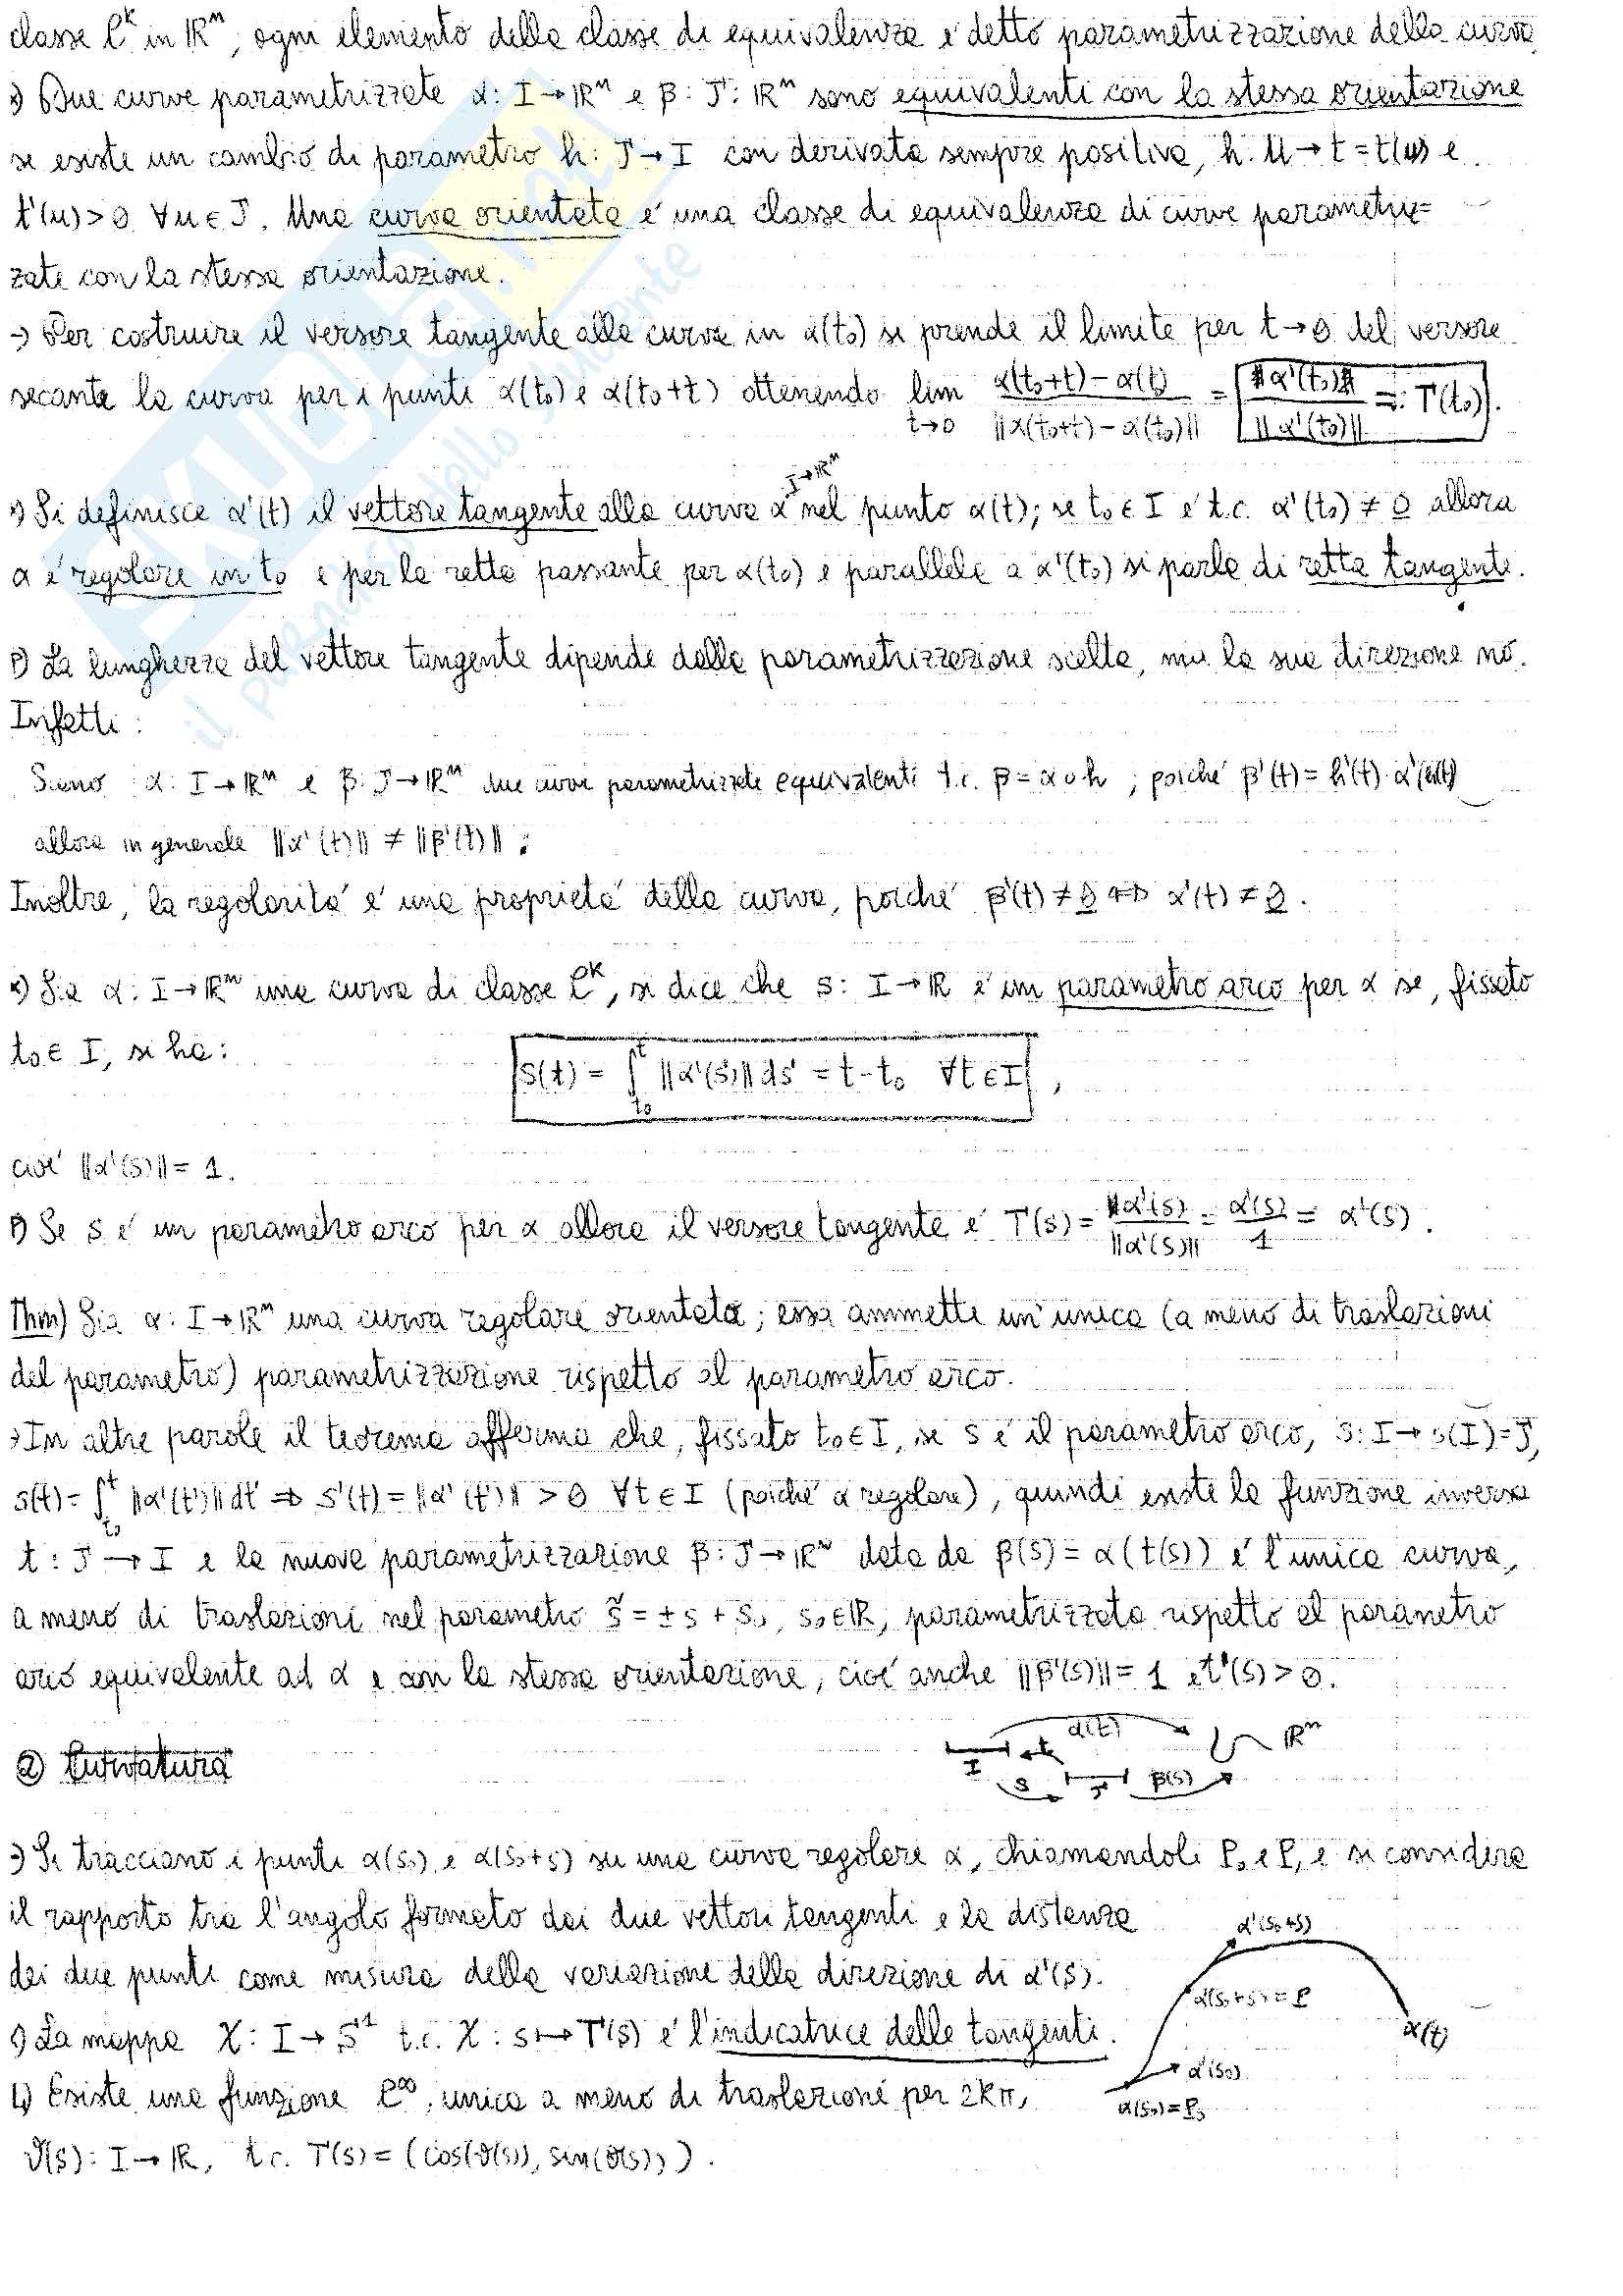 classe C^k in ℝ^n, ogni elemento della classe di equivalenza é detto parametrizzazione della curva
•) Due curve parametrizzate α: I → ℝ^n e β: J: ℝ^n sono equivalenti con la stessa orientazione
se esiste un cambio di parametro h: J → I con derivata sempre positiva, h: u → t = t(u) e
t'(u) > 0 ∀u ∈ J. Una curva orientata é una classe di equivalenza di curve parametriz=
zate con la stessa orientazione.
→ Per costruire il versore tangente alla curva in α(t₀) si prende il limite per t → 0 del versore
secante la curva per i punti α(t₀) e α(t₀+t) ottenendo lim_{t→0} (α(t₀+t) − α(t)) / ‖α(t₀+t) − α(t₀)‖ = α'(t₀) / ‖α'(t₀)‖ =: T(t₀).
•) Si definisce α'(t) il vettore tangente alla curva α I→ℝ^n nel punto α(t); se t₀ ∈ I é t.c. α'(t₀) ≠ 0 allora
α é regolare in t₀ e per la retta passante per α(t₀) e parallela a α'(t₀) si parla di retta tangente.
P) La lunghezza del vettore tangente dipende dalla parametrizzazione scelta, ma la sua direzione no.
Infatti:
Siano α: I → ℝ^n e β: J → ℝ^n due curve parametrizzate equivalenti t.c. β = α ∘ h, poiché β'(t) = h'(t) · α'(h(t))
allora in generale ‖α'(t)‖ ≠ ‖β'(t)‖;
Inoltre, la regolarità é una proprietà della curva, poiché β'(t) ≠ 0 ⇔ α'(t) ≠ 0.
•) Sia α: I → ℝ^n una curva di classe C^k, si dice che s: I → ℝ é un parametro arco per α se, fissato
t₀ ∈ I, si ha:
S(t) = ∫_{t₀}^{t} ‖α'(s')‖ ds' = t − t₀ ∀t ∈ I,
cioé ‖α'(s)‖ = 1.
P) Se s é un parametro arco per α allora il versore tangente é T(s) = α'(s) / ‖α'(s)‖ = α'(s) / 1 = α'(s).
Thm) Sia α: I → ℝ^n una curva regolare orientata; essa ammette un'unica (a meno di traslazioni
del parametro) parametrizzazione rispetto al parametro arco.
→ In altre parole il teorema afferma che, fissato t₀ ∈ I, se s é il parametro arco, s: I → s(I) = J,
s(t) = ∫_{t₀}^{t} ‖α'(t')‖ dt' ⇒ s'(t) = ‖α'(t')‖ > 0 ∀t ∈ I (poiché α regolare), quindi esiste la funzione inversa
t: J → I e la nuova parametrizzazione β: J → ℝ^n data da β(s) = α(t(s)) é l'unica curva,
a meno di traslazioni nel parametro s̃ = ± s + s₀, s₀ ∈ ℝ, parametrizzata rispetto al parametro
arco equivalente ad α e con la stessa orientazione, cioé anche ‖β'(s)‖ = 1 e t'(s) > 0.
α(t) ℝ^n
② Curvatura
I t
s J β(s)
→ Si tracciano i punti α(s₀) e α(s₀+s) su una curva regolare α, chiamandoli P₀ e P, e si considera
il rapporto tra l'angolo formato dai due vettori tangenti e la distanza
α'(s₀+s)
dei due punti come misura della variazione della direzione di α'(s).
α(s₀+s) = P
•) La mappa χ: I → S^1 t.c. χ: s ↦ T(s) é l'indicatrice delle tangenti.
α(t)
α'(s₀)
L) Esiste una funzione C^∞, unica a meno di traslazioni per 2kπ,
α(s₀) = P₀
ϑ(s): I → ℝ, t.c. T(s) = (cos(ϑ(s)), sin(ϑ(s))).